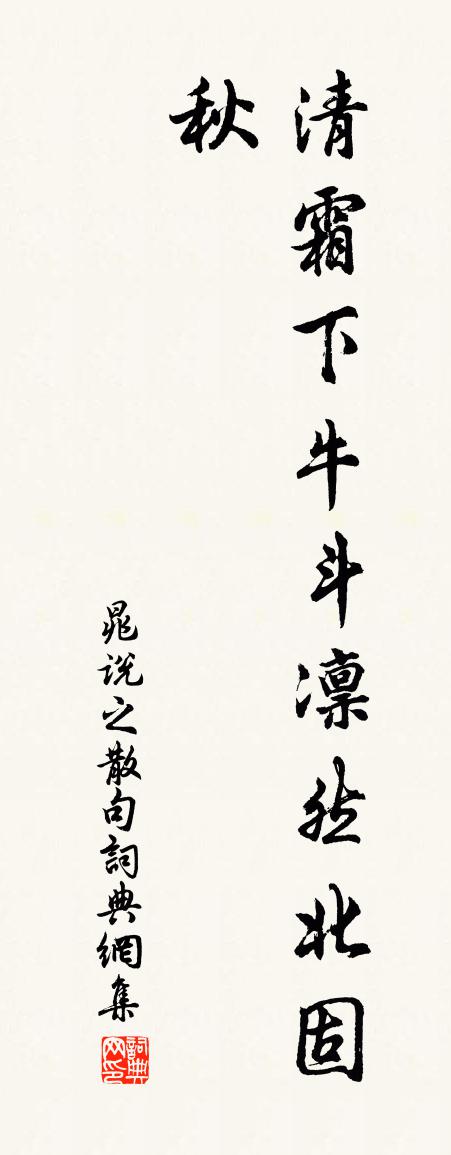 清霜下牛斗凛然北固
秋
晁说之散句詞典網集
詞典
网印